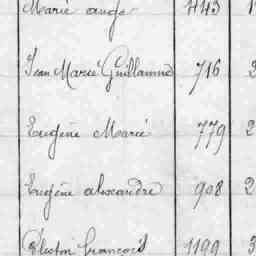 Marie ange 443
Jean Marie Guillaume 716 2
Eugène Marie 779 2
Eugène alexandre 908 2
François 1199 3